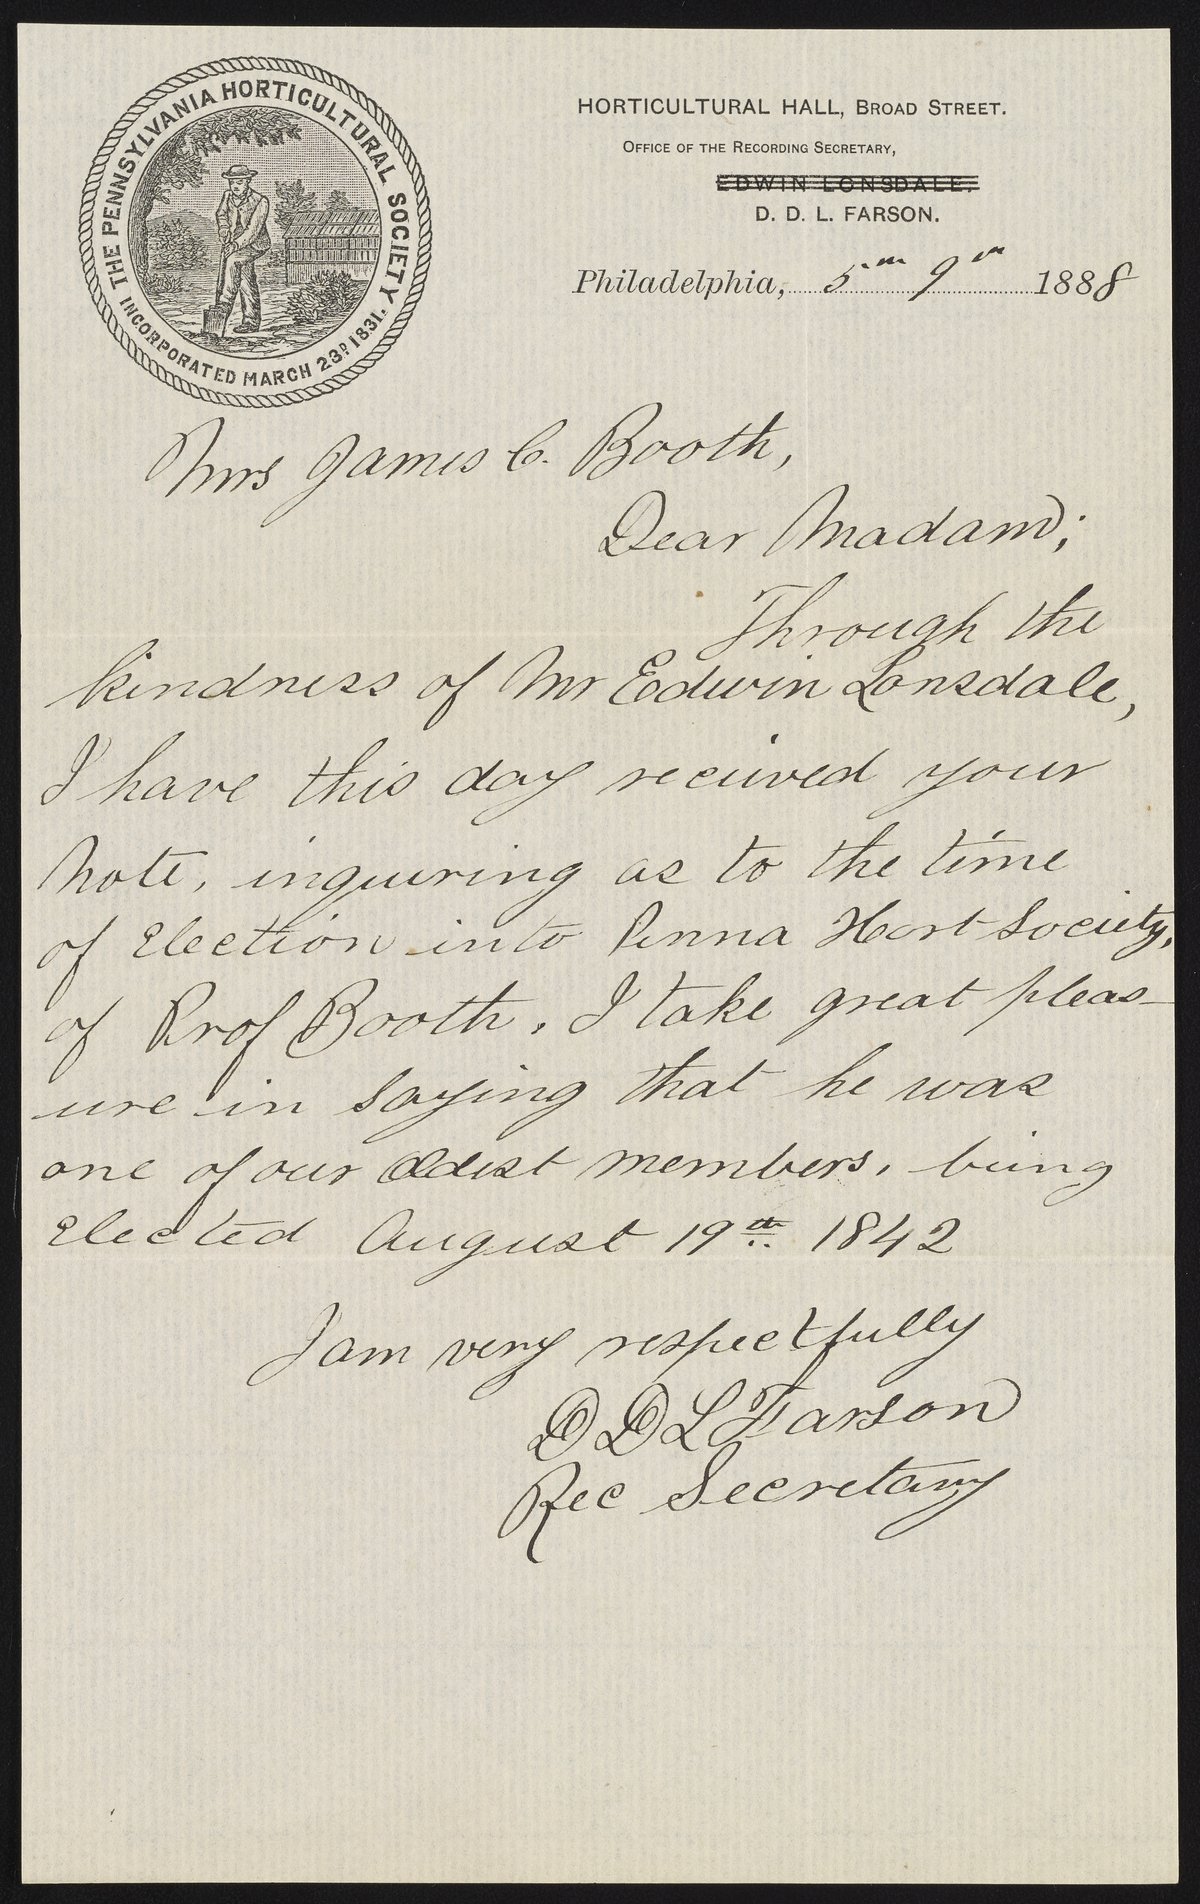 THE PENNSYLVANIA HORTICULTURAL SOCIETY
INCORPORATED MARCH 23D. 1831.
HORTICULTURAL HALL, BROAD STREET.
OFFICE OF THE RECORDING SECRETARY,
EDWIN LONSDALE.
D. D. L. FARSON.
Philadelphia, 5 mo 9 th 1888
Mrs James C. Booth,
Dear Madam;
Through the
kindness of Mr Edwin Lonsdale,
I have this day received your
Note, inquiring as to the time
of Election into Penna Hort Society,
of Prof Booth. I take great pleas-
ure in saying that he was
one of our Oldest members, being
Elected August 19th 1842
I am very respectfully
D D L Farson
Rec Secretary